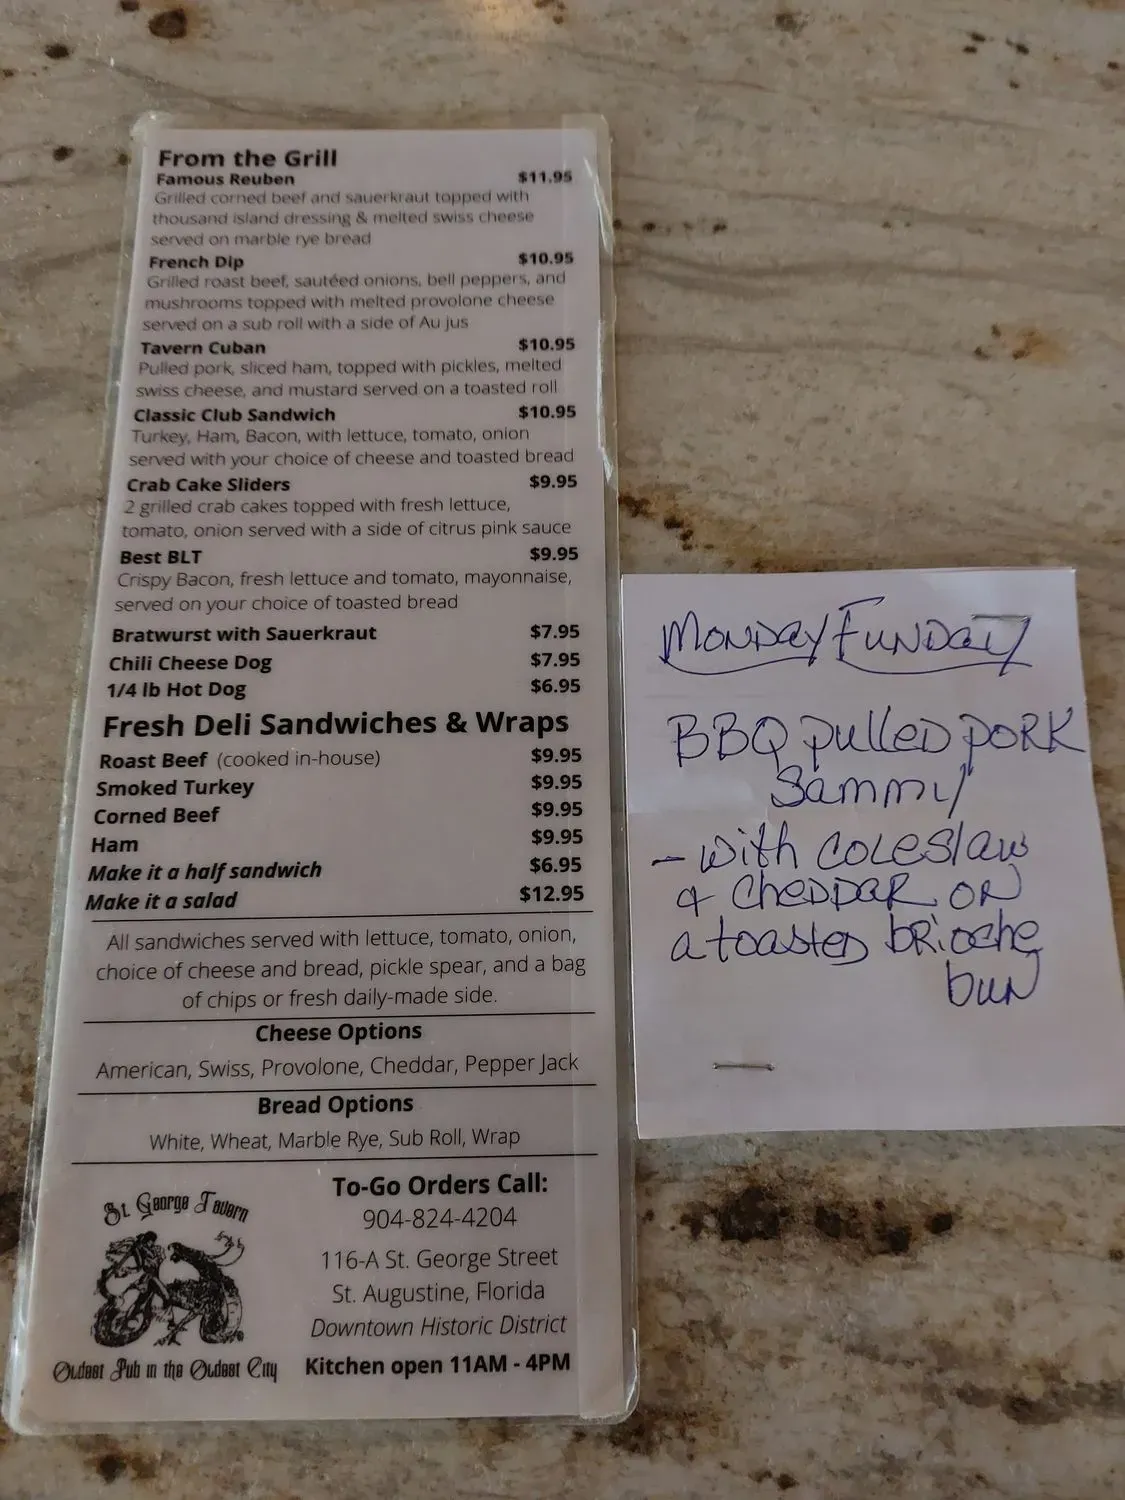 From the Grill
Famous Reuben $11.95
Grilled corned beef and sauerkraut topped with
thousand island dressing & melted swiss cheese
served on marble rye bread
French Dip $10.95
Grilled roast beef, sautéed onions, bell peppers, and
mushrooms topped with melted provolone cheese
served on a sub roll with a side of Au jus
Tavern Cuban $10.95
Pulled pork, sliced ham, topped with pickles, melted
swiss cheese, and mustard served on a toasted roll
Classic Club Sandwich $10.95
Turkey, Ham, Bacon, with lettuce, tomato, onion
served with your choice of cheese and toasted bread
Crab Cake Sliders $9.95
2 grilled crab cakes topped with fresh lettuce,
tomato, onion served with a side of citrus pink sauce
Best BLT $9.95
Crispy Bacon, fresh lettuce and tomato, mayonnaise,
served on your choice of toasted bread
Bratwurst with Sauerkraut $7.95
Chili Cheese Dog $7.95
1/4 lb Hot Dog $6.95
Fresh Deli Sandwiches & Wraps
Roast Beef (cooked in-house) $9.95
Smoked Turkey $9.95
Corned Beef $9.95
Ham $9.95
Make it a half sandwich $6.95
Make it a salad $12.95
All sandwiches served with lettuce, tomato, onion,
choice of cheese and bread, pickle spear, and a bag
of chips or fresh daily-made side.
Cheese Options
American, Swiss, Provolone, Cheddar, Pepper Jack
Bread Options
White, Wheat, Marble Rye, Sub Roll, Wrap
St. George Tavern
Oldest Pub in the Oldest City
To-Go Orders Call:
904-824-4204
116-A St. George Street
St. Augustine, Florida
Downtown Historic District
Kitchen open 11AM - 4PM
Monday Funday
BBQ pulled pork
Sammy
- with coleslaw
& cheddar on
a toasted brioche
bun